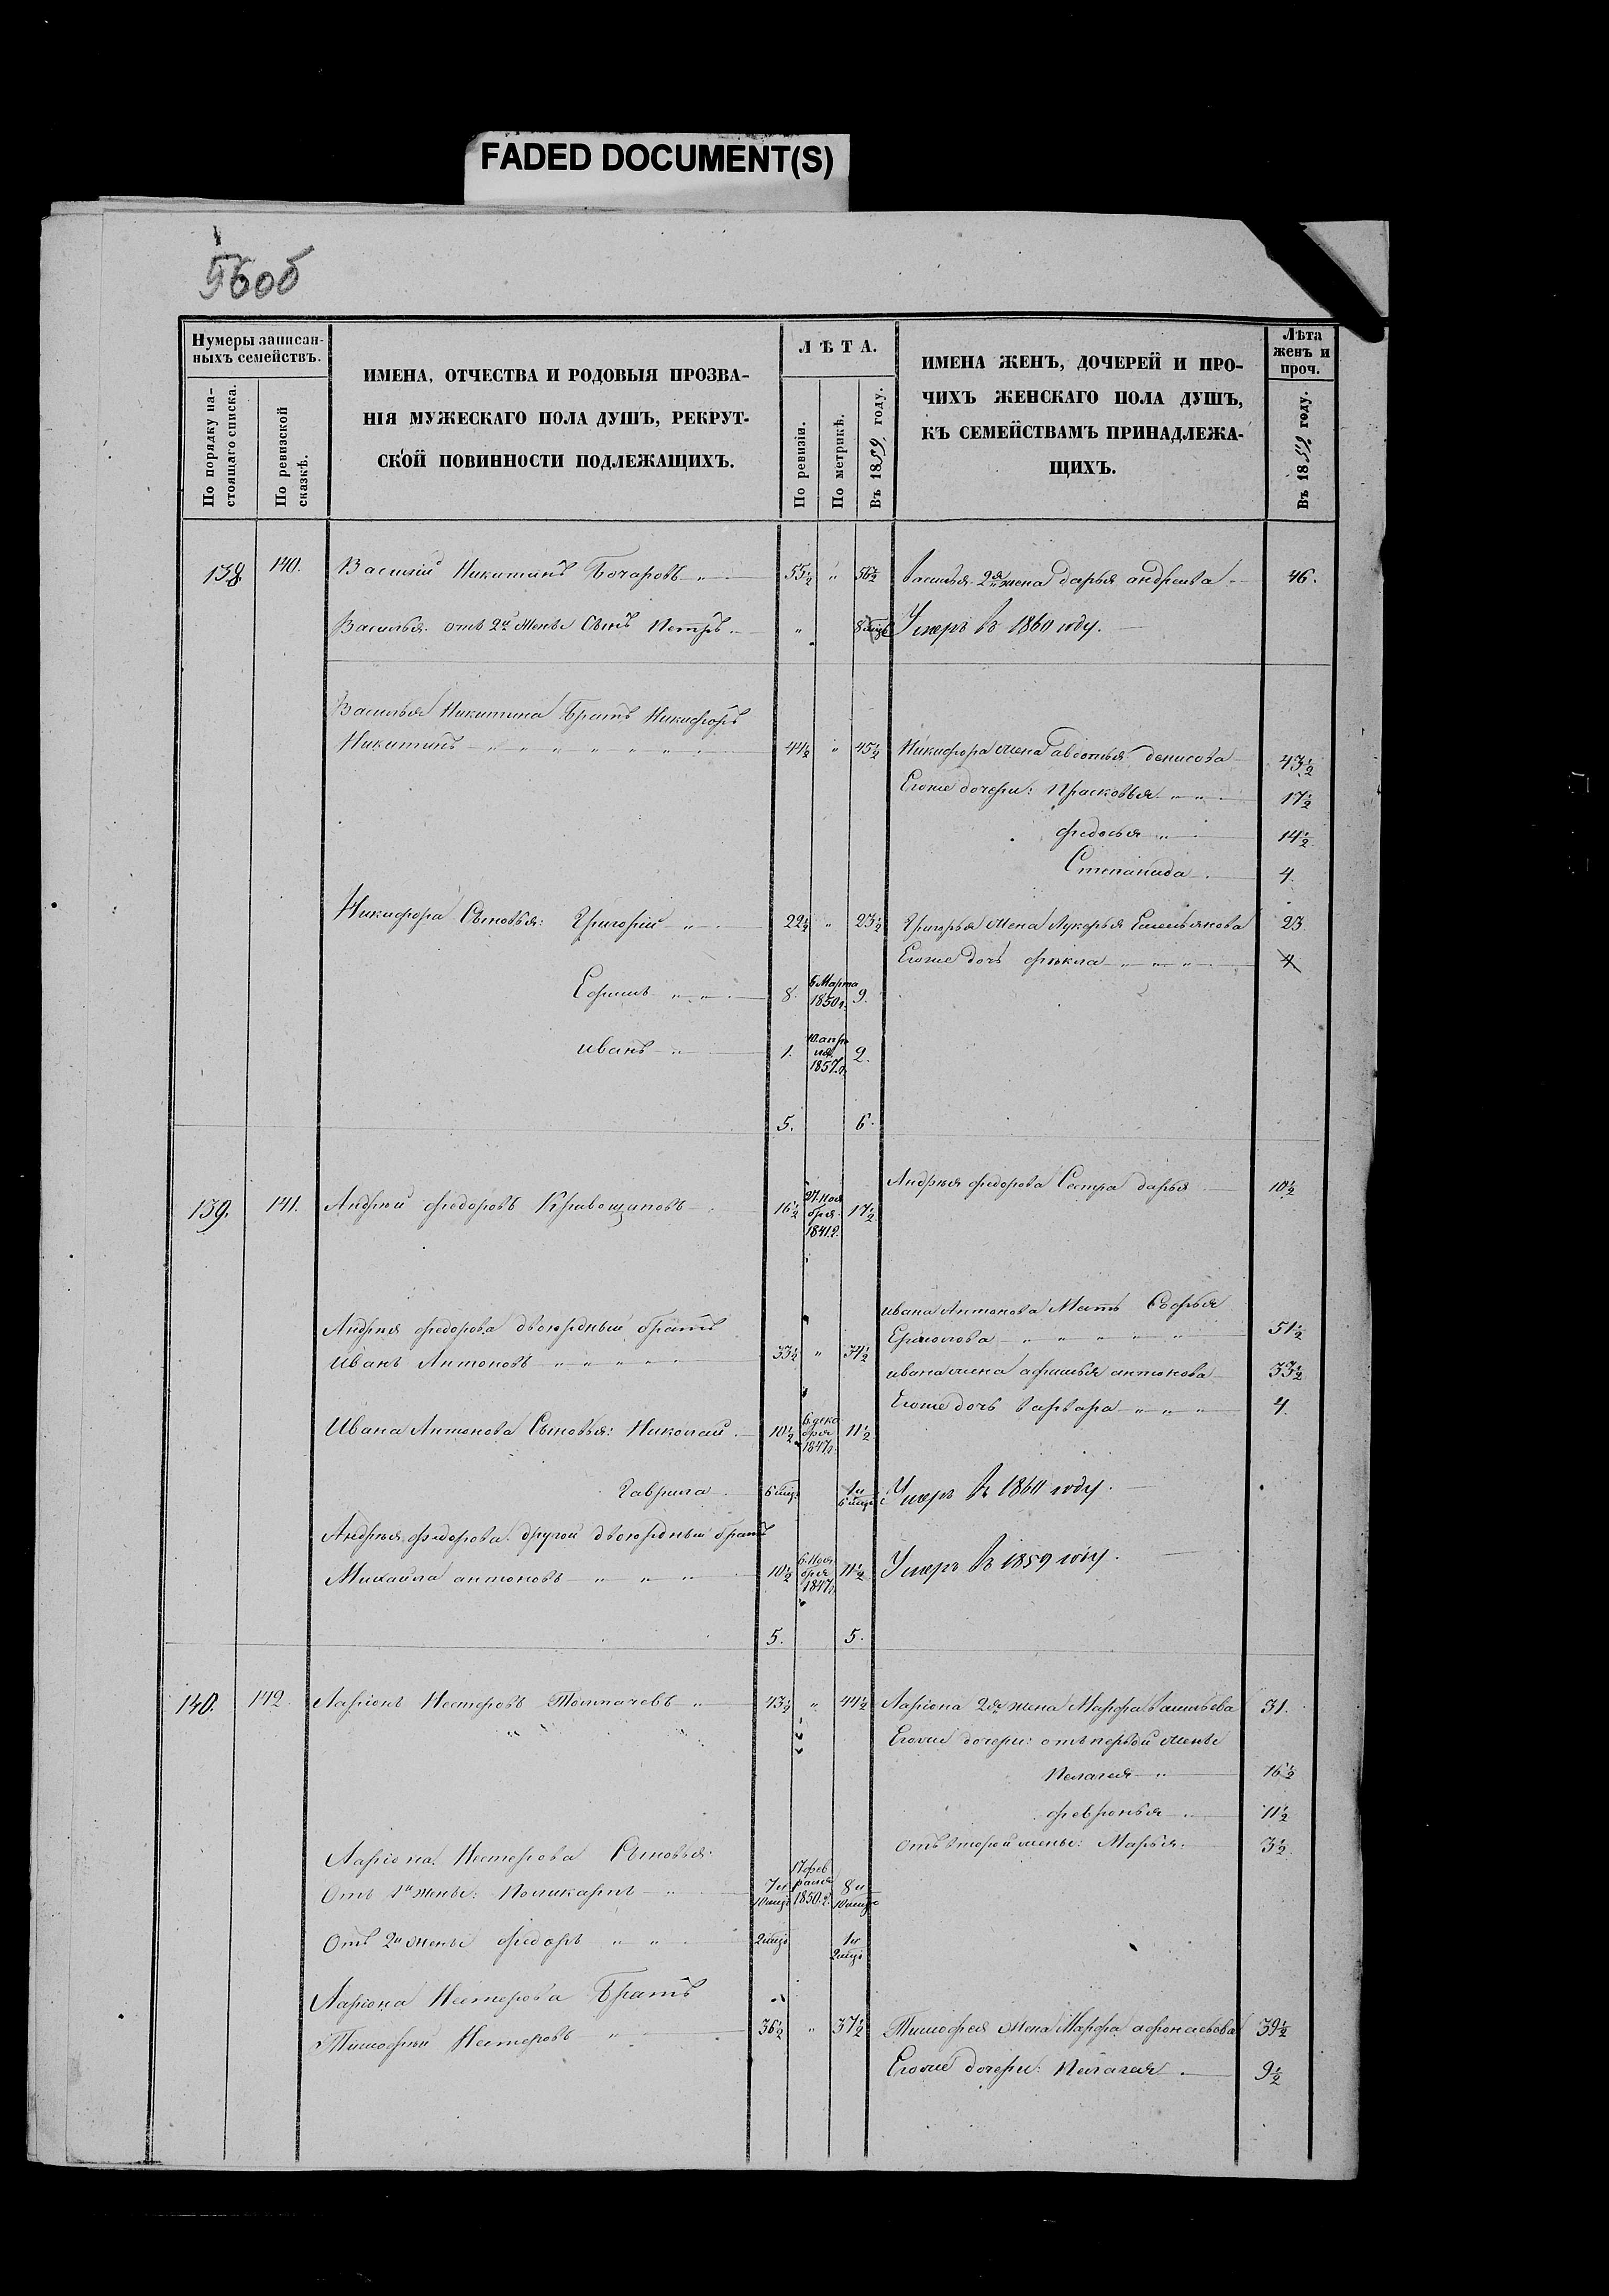 FADED DOCUMENT(S)
56об
Нумеры записан-
ныхъ семействъ.
По порядку на-
стоящаго списка.
По ревизской
сказкѣ.
ИМЕНА, ОТЧЕСТВА И РОДОВЫЯ ПРОЗВА-
НІЯ МУЖЕСКАГО ПОЛА ДУШЪ, РЕКРУТ-
СКОЙ ПОВИННОСТИ ПОДЛЕЖАЩИХЪ.
ЛѢТА.
По ревизіи.
По метрикѣ.
Въ 1859 году.
ИМЕНА ЖЕНЪ, ДОЧЕРЕЙ И ПРО-
ЧИХЪ ЖЕНСКАГО ПОЛА ДУШЪ,
КЪ СЕМЕЙСТВАМЪ ПРИНАДЛЕЖА-
ЩИХЪ.
Лѣта
женъ и
проч.
Въ 1859 году.
138. 140. Василий Никитинъ Бочаровъ 55½ " 56½ Василья 2я жена дарья андреива 46.
Василья отъ 2й Жены Сынъ Петръ " 8 мцв Умеръ въ 1860 году.
Василья Никитина Братъ Никифоръ
Никитинъ 44½ " 45½ Никифора Жена авдотья денисова 43½
Егоже дочери: Прасковья 17½
федосья 14½
Степанида 4.
Никифора Сыновья: Григорій 22½ " 23½ Григорья Жена Лукерья Емельянова 23.
Егоже дочь фекла 4
Ефимъ 8. 6 Марта 1850г. 9.
иванъ 1. 10. апреля 1857.г. 2.
5. 6.
Андрея федорова Сестра дарья 10½
139. 141. Андрей федоровъ Кривощаповъ 16½ 27. ноября 1841.г. 17½
ивана Антонова Мать Софья
Андрея федорова двоюрдный братъ
Ермолова 51½
Иванъ Антоновъ 33½ " 34½
ивана жена афимья антонова 33½
Егоже дочь варвара 4.
Ивана Антонова Сыновья: Николай 10½ 6 декабря 1847г. 11½
Гаврила 6 мцв 1 и 6 мцв Умеръ въ 1860 году.
Андрея федорова другой двоюрдный братъ
Михайла антоновъ 10½ 6 ноября 1847г. 11½ Умеръ въ 1859 году.
5. 5.
140. 142. Ларіонъ Нестеровъ Толмачевъ 43½ " 44½ Ларіона 2я жена Марфа васильева 31.
Егоже дочери: отъ первой жены
Пелагея 16½
февронья 11½
отъ второй жены: Марья 3½
Ларіона Нестерова Сыновья:
Отъ 1й жены: Поликарпъ 7 и 10 мцв 17 февраля 1850.г. 8 и 10 мцв
Отъ 2й Жены федоръ 2 мцв 1 и 2 мцв
Ларіона Нестерова Братъ
Тимофей Нестеровъ 36½ " 37½ Тимофея Жена Марфа афонасьева 39½
Егоже дочери: Пелагея 9½